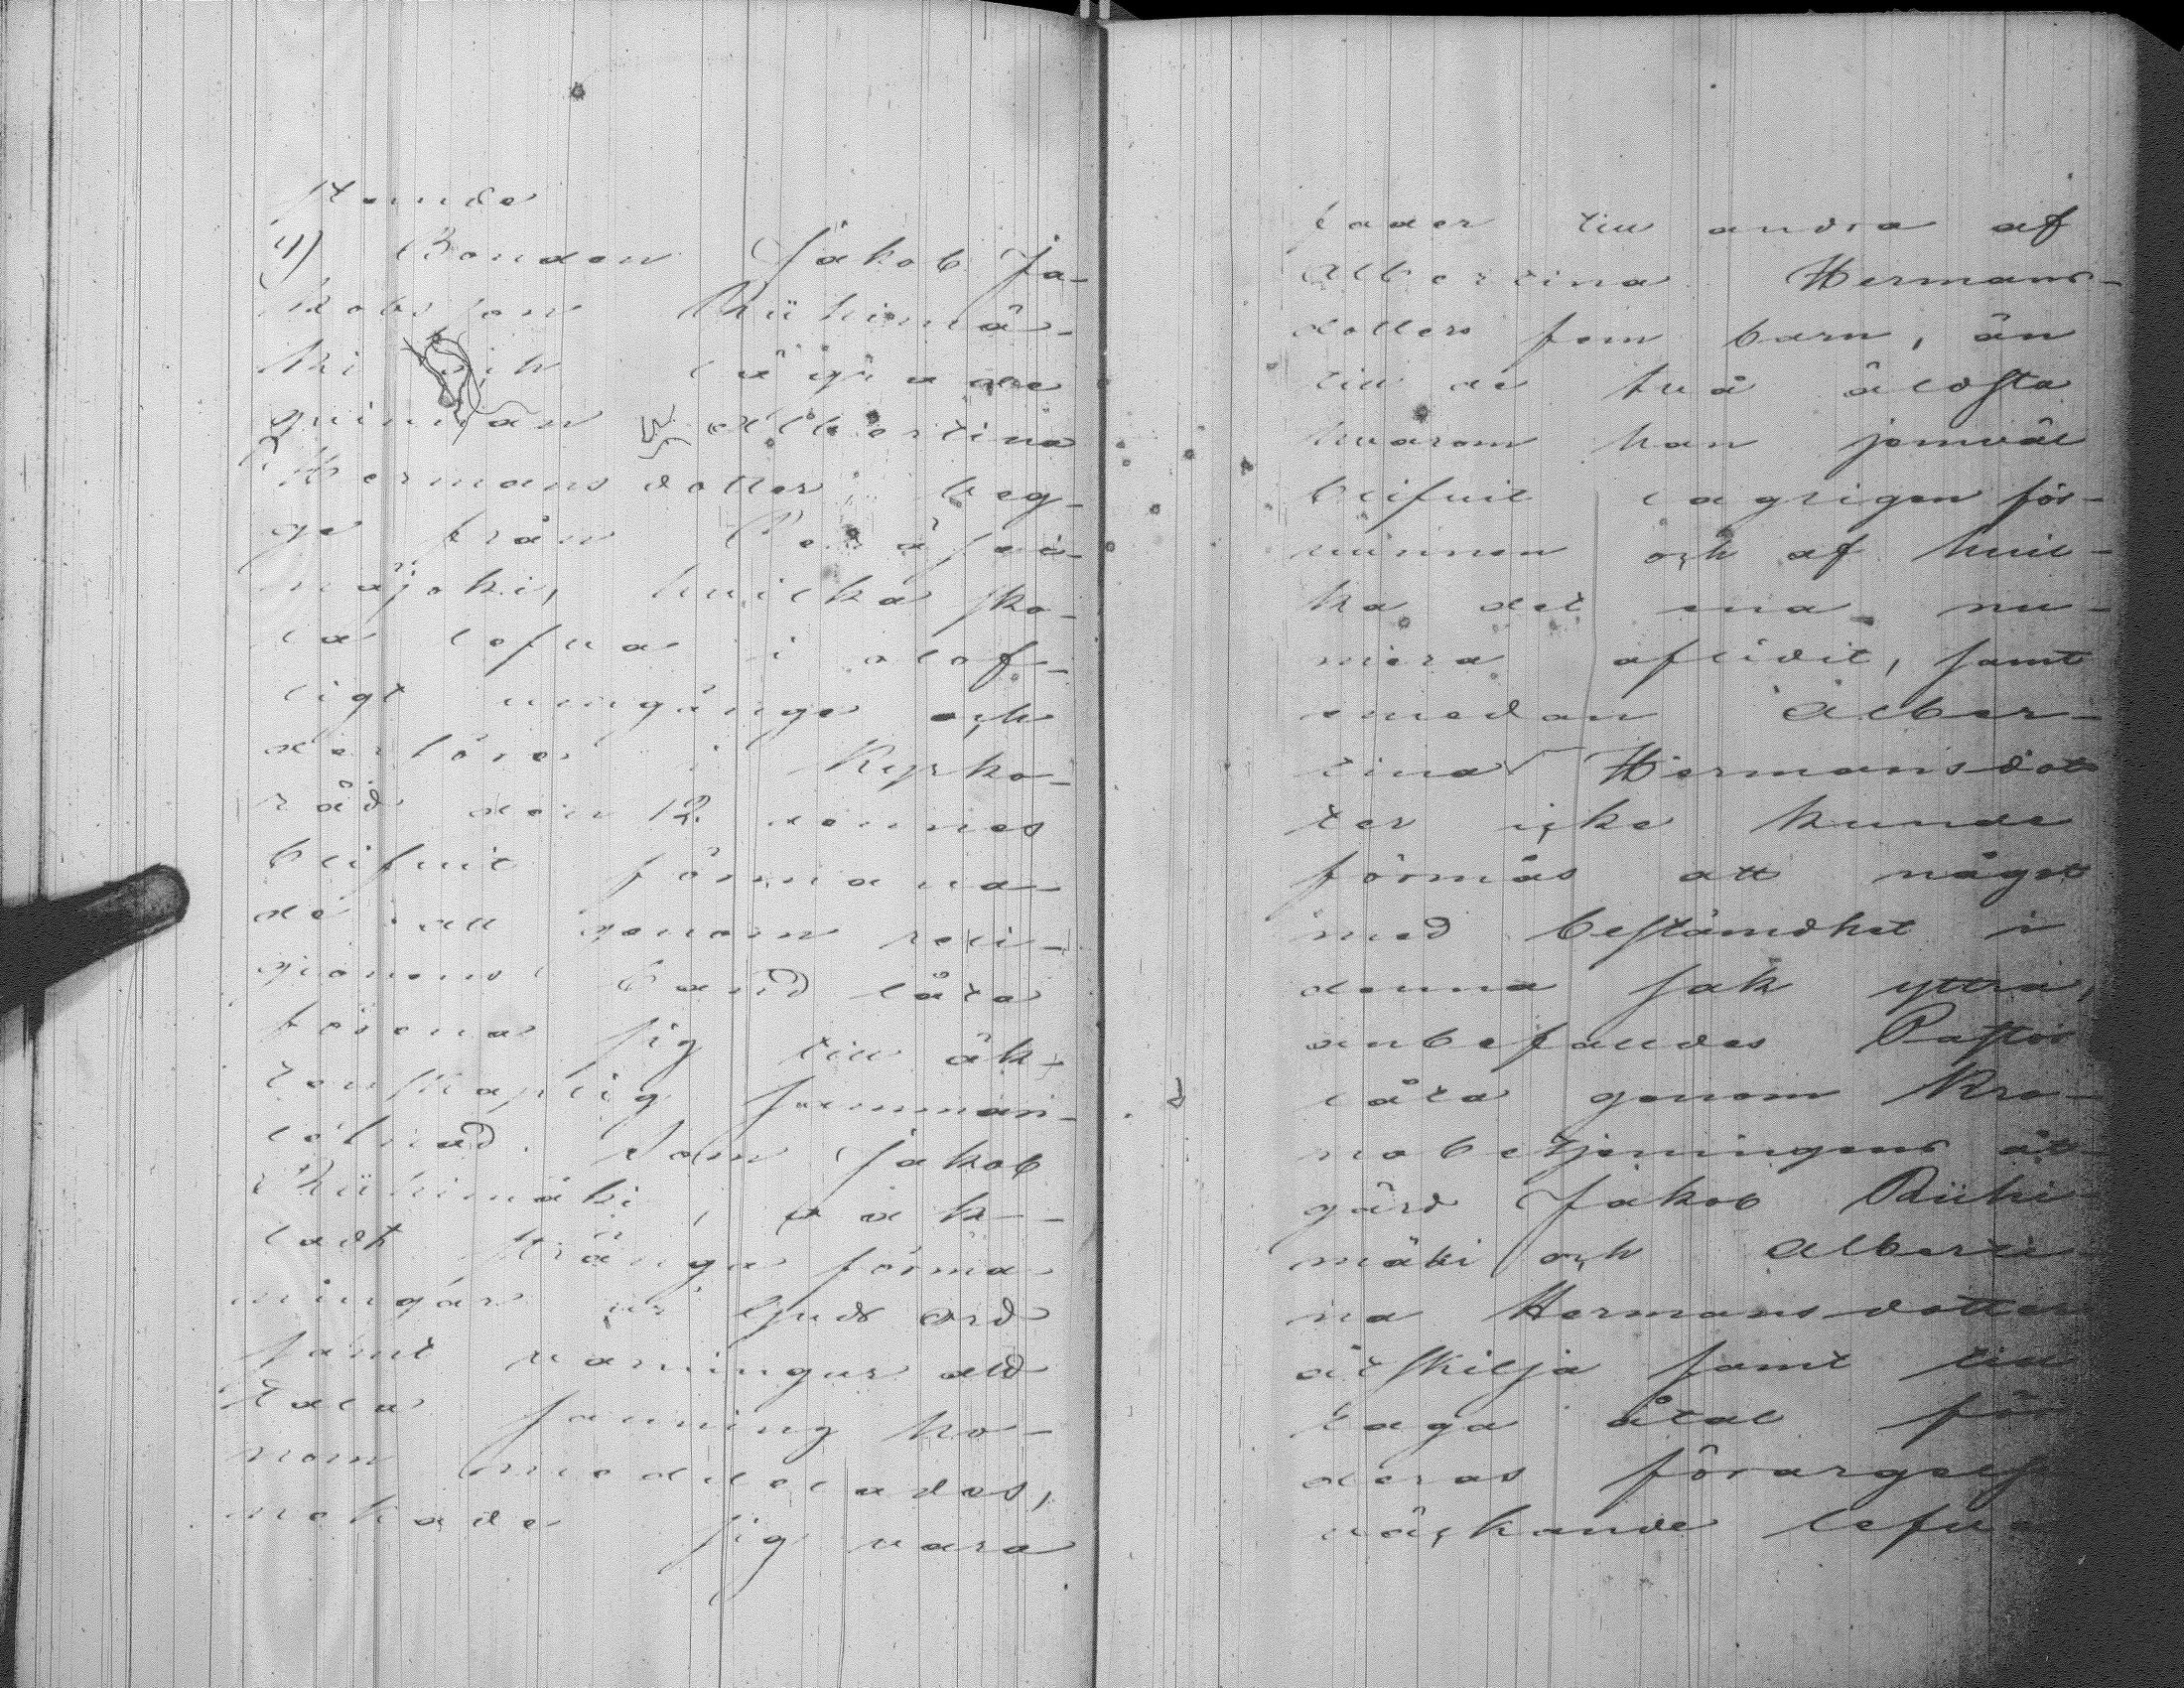 stemde
4) Bonden Jakob Ja-
kobsson Riihimä-
ki och lägrade
qvinnan Albertina
Hermansdotter beg-
ge från Peräsei-
näjoki, hvilka sko-
la lefva i olof-
ligt umgänge och
derföre i Kyrko-
råd den 12 dennes
blifvit förmana-
de att genom reli-
gionens band låta
förena sig till äk-
tenskaplig samman-
lefnad. Som Jakob
Riihimäki, oak-
tadt stränga förma
ningar ur Guds ord
samt varningar ald
tala sanning ho-
nom meddelades,
nekade sig vara
fader till andra af
Albertina Hermans-
dotters fem barn, än
till de två äldsta
hvarom han jemväl
blifvit lagligen för-
vunnen och af hvil-
ka det ena nu-
mera aflidit, samt
emedan Alber-
tina Hermansdot
ter icke kunde
förmås att något
med bestämdhet i
denna sak yttra,
anbefandes Pastor
låta genom Kro-
nobetjeningens åt
gärd Jakob Riihi
mäki och Alberti
na Hermansdotter
åtskilja samt till
taga åtal för
deras förargelse
väckande lefve